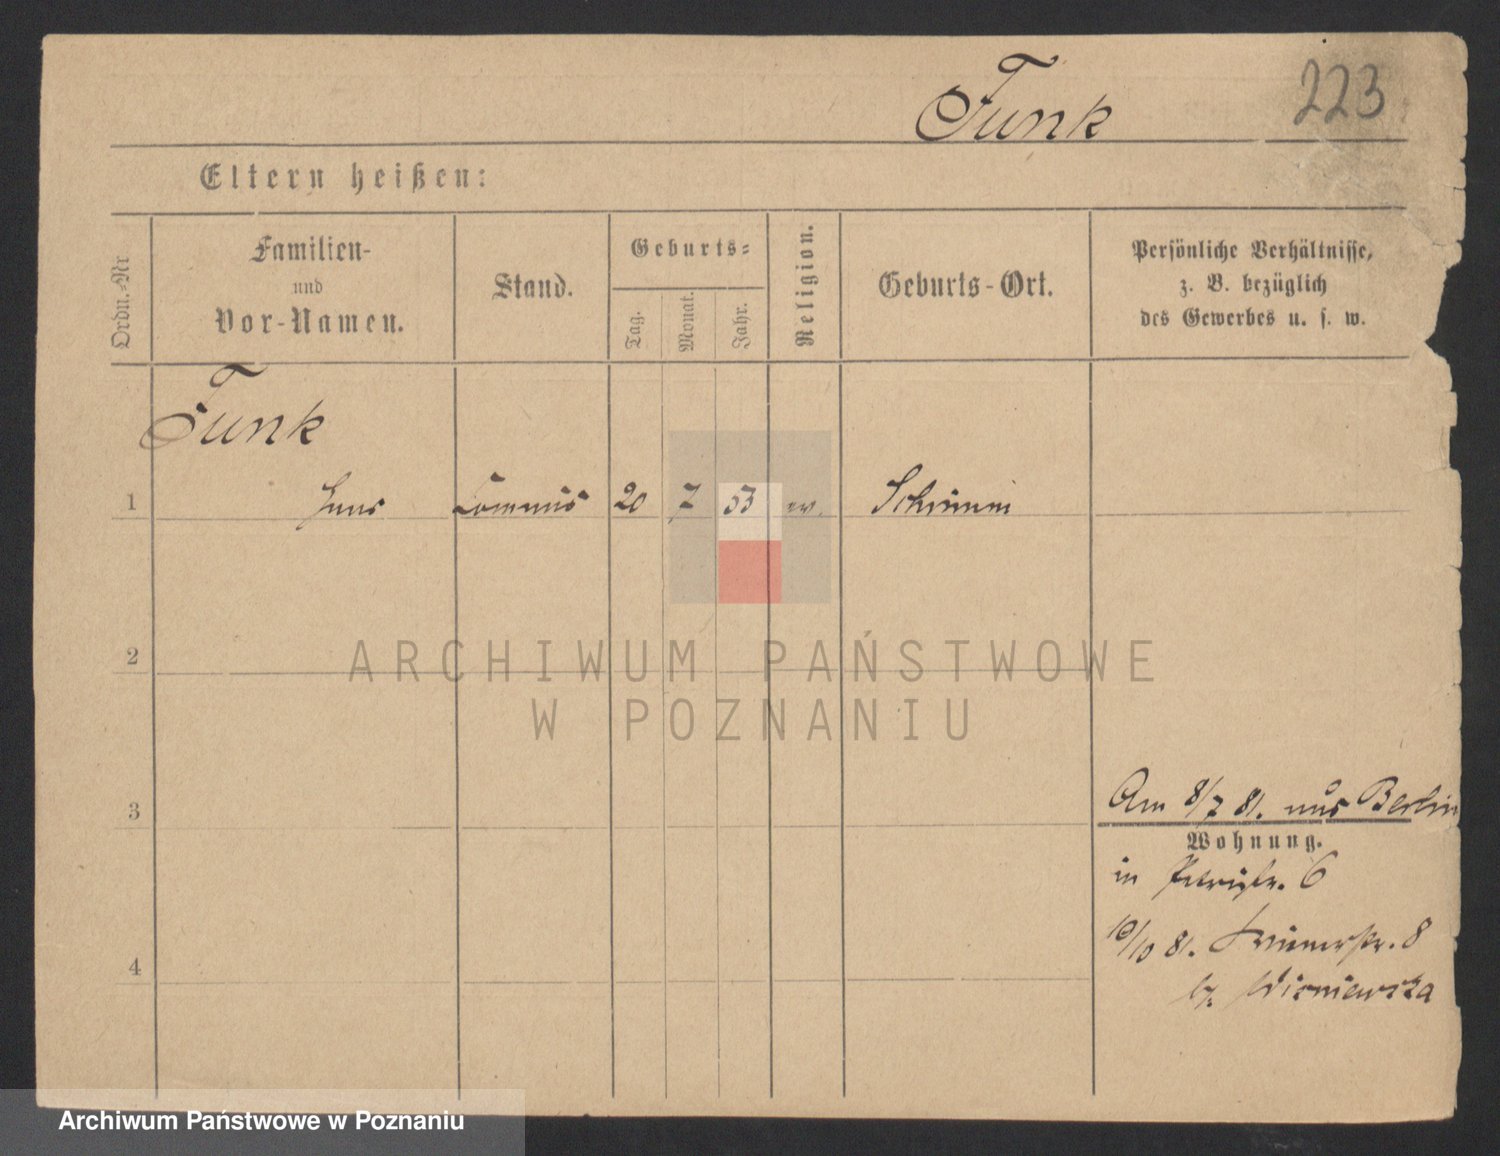 Funk
223
Eltern heißen:
Ordn.-Nr
Familien-
und
Vor-Namen.
Stand.
Geburts-
Tag.
Monat.
Jahr.
Religion.
Geburts-Ort.
Persönliche Verhältnisse,
z. B. bezüglich
des Gewerbes u. s. w.
Funk
1 Commis 20 7 53 ev. Schrimm
2
ARCHIWUM PAŃSTWOWE
W POZNANIU
3
Am 8/7 81. aus Berlin
Wohnung.
in 6
10/10 81. 8
4
b. Wisniewska
Archiwum Państwowe w Poznaniu